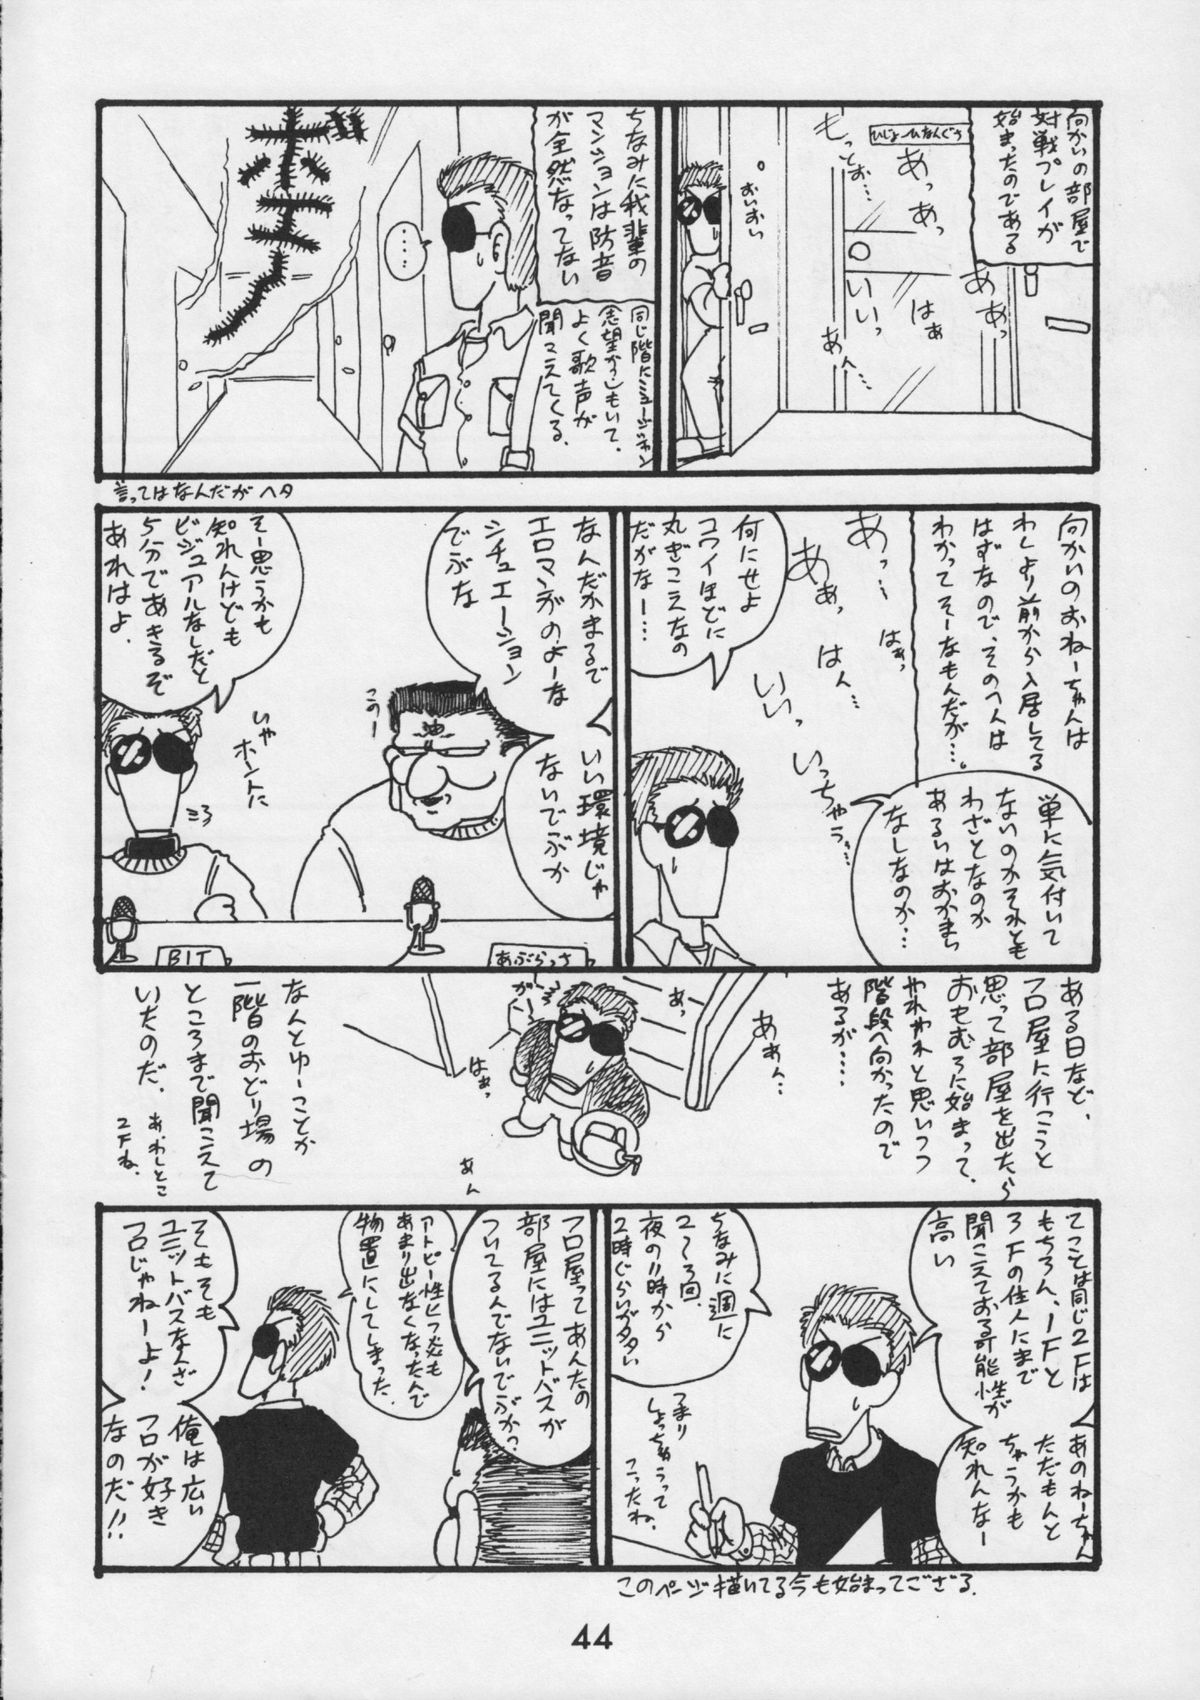 向かいの部屋で
対戦プレイが
始まったのである
ひじょーひなんぐち
もっとぉ…
あっあっ
あぁっ
はぁ
いいっ
あん…
おいおい
ちなみに我輩の
マンションは防音
が全然なってない
同じ階にミュージシャン
志望かうしもいて、
よく歌声が
聞こえてくる。
……
言ってはなんだがヘタ
向かいのおねーちゃんは
わしより前から入居してる
はずなので、その人は
わかってそーなもんだが…。
単に気付いて
ないのかそれとも
わざとなのか
あるいはおかまい
なしなのか…
あっ…
はぁっ
あぁっ
はん…
いいっ
いっちゃう…
何にせよ
コワイほどに
丸ぎこえなの
だがなー…
なんだかまるで
エロマンガのよーな
シチュエーション
でぶな
いい環境じゃ
ないでぶか
このー
油
そー思うかも
知れんけども
ビジュアルなしだと
5分であきるぞ
あれはよ.
いや
ホントに
BIT
あぶらっさ
ある日など、
フロ屋に行こうと
思って部屋を出たら
おもむろに始まって、
やれやれと思いつつ
階段へ向かったので
あるが…
あぁん…
あっ
はぁっ
あん
なんとゆーことか
一階のおどり場の
ところまで聞こえて
いたのだ.
あ、わしとこ
2Fね.
てことは同じ2Fは
もちろん、1Fと
3Fの住人にまで
聞こえておる可能性が
高い
あのねーちゃん
ただもんと
ちゃうかも
知れんなー
ちなみに週に
2〜3回、
夜の11時から
2時ぐらいがタタい
つまり
しょっちゅうって
こったね.
このページ描いてる今も始まってござる.
フロ屋ってあんたの
部屋にはユニットバスが
ついてるんでないでぶか?
アトピー性ヒフ炎も
あまり出なくなったんで
物置にしてしまった.
そもそも
ユニットバスなんざ
フロじゃねーよ!
俺は広い
フロが好き
なのだ!!
44